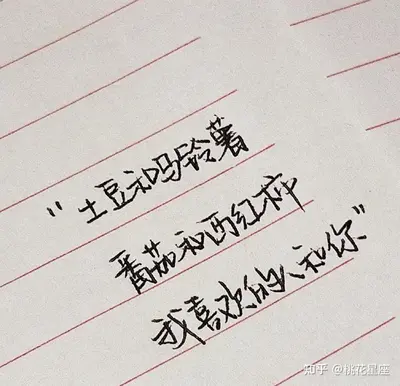 “土豆和马铃薯
番茄和西红柿
我喜欢的人和你”
知乎 @桃花星座